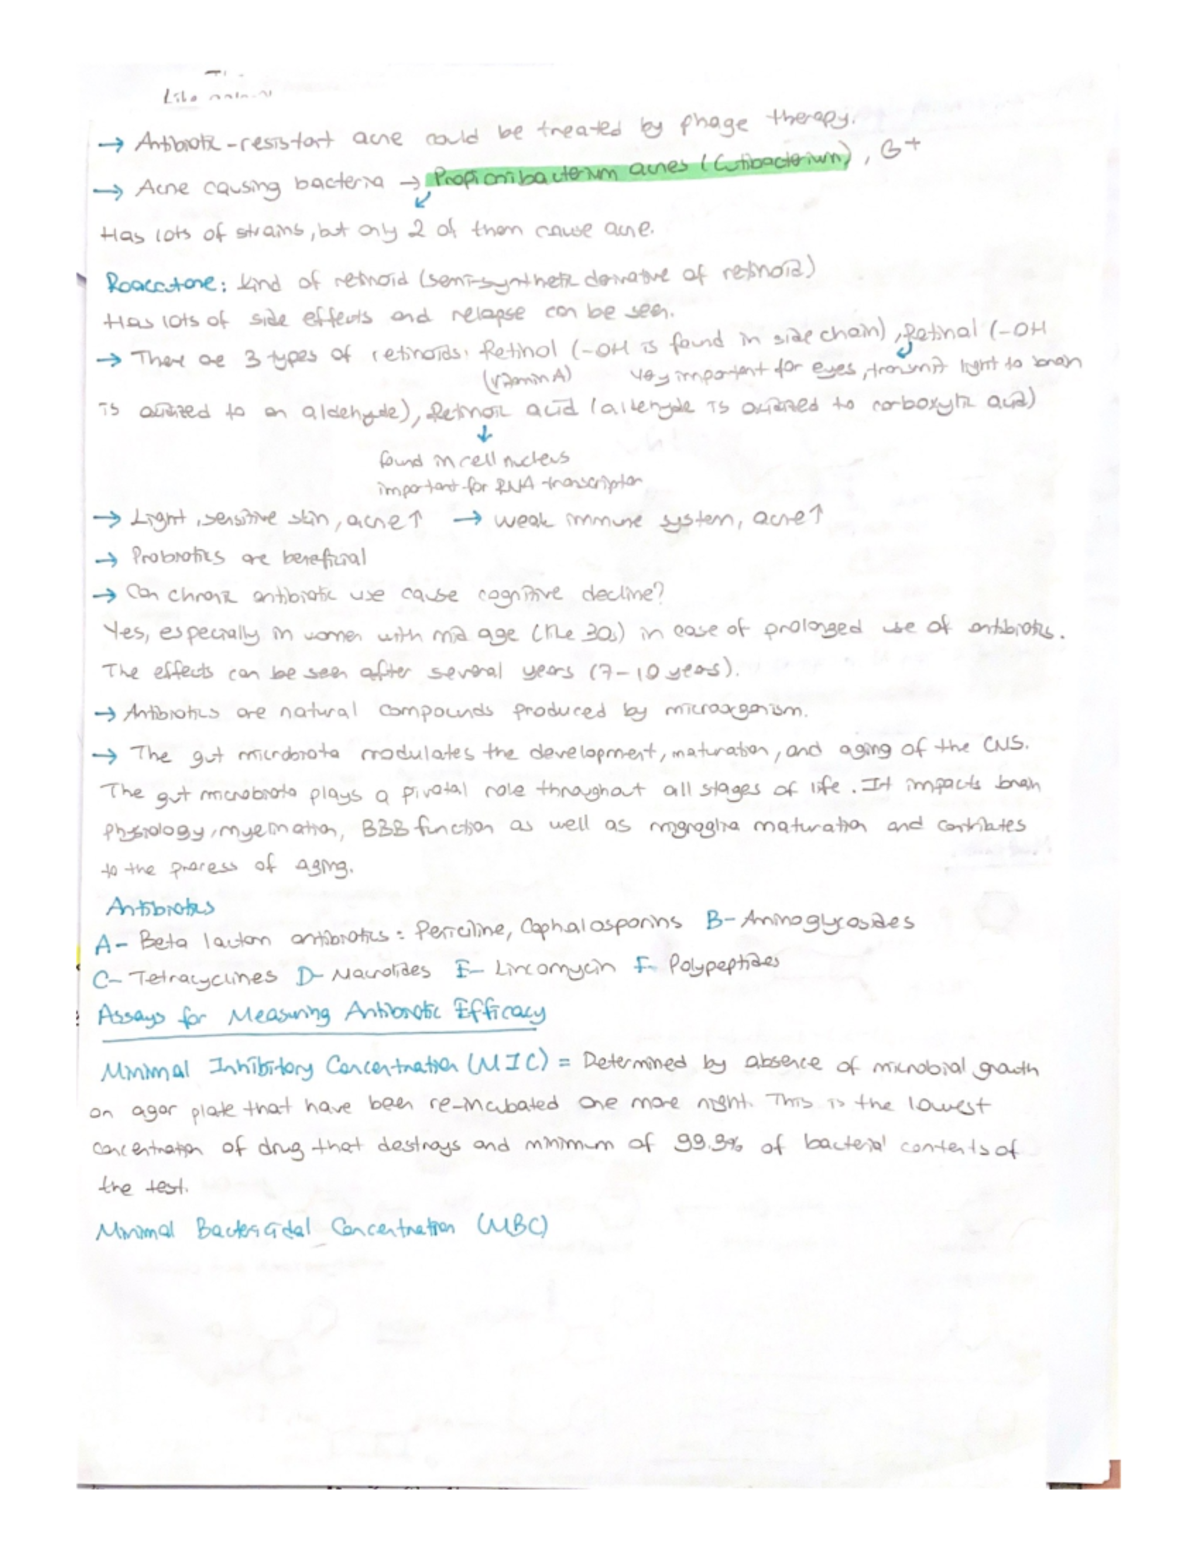 → Antibiotic-resistant acne could be treated by phage therapy.
→ Acne causing bacteria → Propionibacterium acnes (Cutibacterium), G+
Has lots of strains, but only 2 of them cause acne.
Roaccutane: kind of retinoid (semi-synthetic derivative of retinoid)
Has lots of side effects and relapse can be seen.
→ There are 3 types of retinoids: Retinol (-OH is found in side chain), Retinal (-OH
(vitamin A) very important for eyes, transmit light to brain
is oxidized to an aldehyde), Retinoic acid (aldehyde is oxidized to carboxylic acid)
found in cell nucleus
important for RNA transcription
→ Light, sensitive skin, acne↑ → weak immune system, acne↑
→ Probiotics are beneficial
→ Can chronic antibiotic use cause cognitive decline?
Yes, especially in women with mid age (the 30s) in case of prolonged use of antibiotics.
The effects can be seen after several years (7-10 years).
→ Antibiotics are natural compounds produced by microorganism.
→ The gut microbiota modulates the development, maturation, and aging of the CNS.
The gut microbiota plays a pivotal role throughout all stages of life. It impacts brain
physiology, myelination, BBB function as well as microglia maturation and contributes
to the process of aging.
Antibiotics
A- Beta lactam antibiotics: Peniciline, Cephalosporins B- Aminoglycosides
C- Tetracyclines D- Macrolides E- Lincomycin F- Polypeptides
Assays for Measuring Antibiotic Efficacy
Minimal Inhibitory Concentration (MIC) = Determined by absence of microbial growth
on agar plate that have been re-incubated one more night. This is the lowest
concentration of drug that destroys and minimum of 99.9% of bacterial contents of
the test.
Minimal Bactericidal Concentration (MBC)